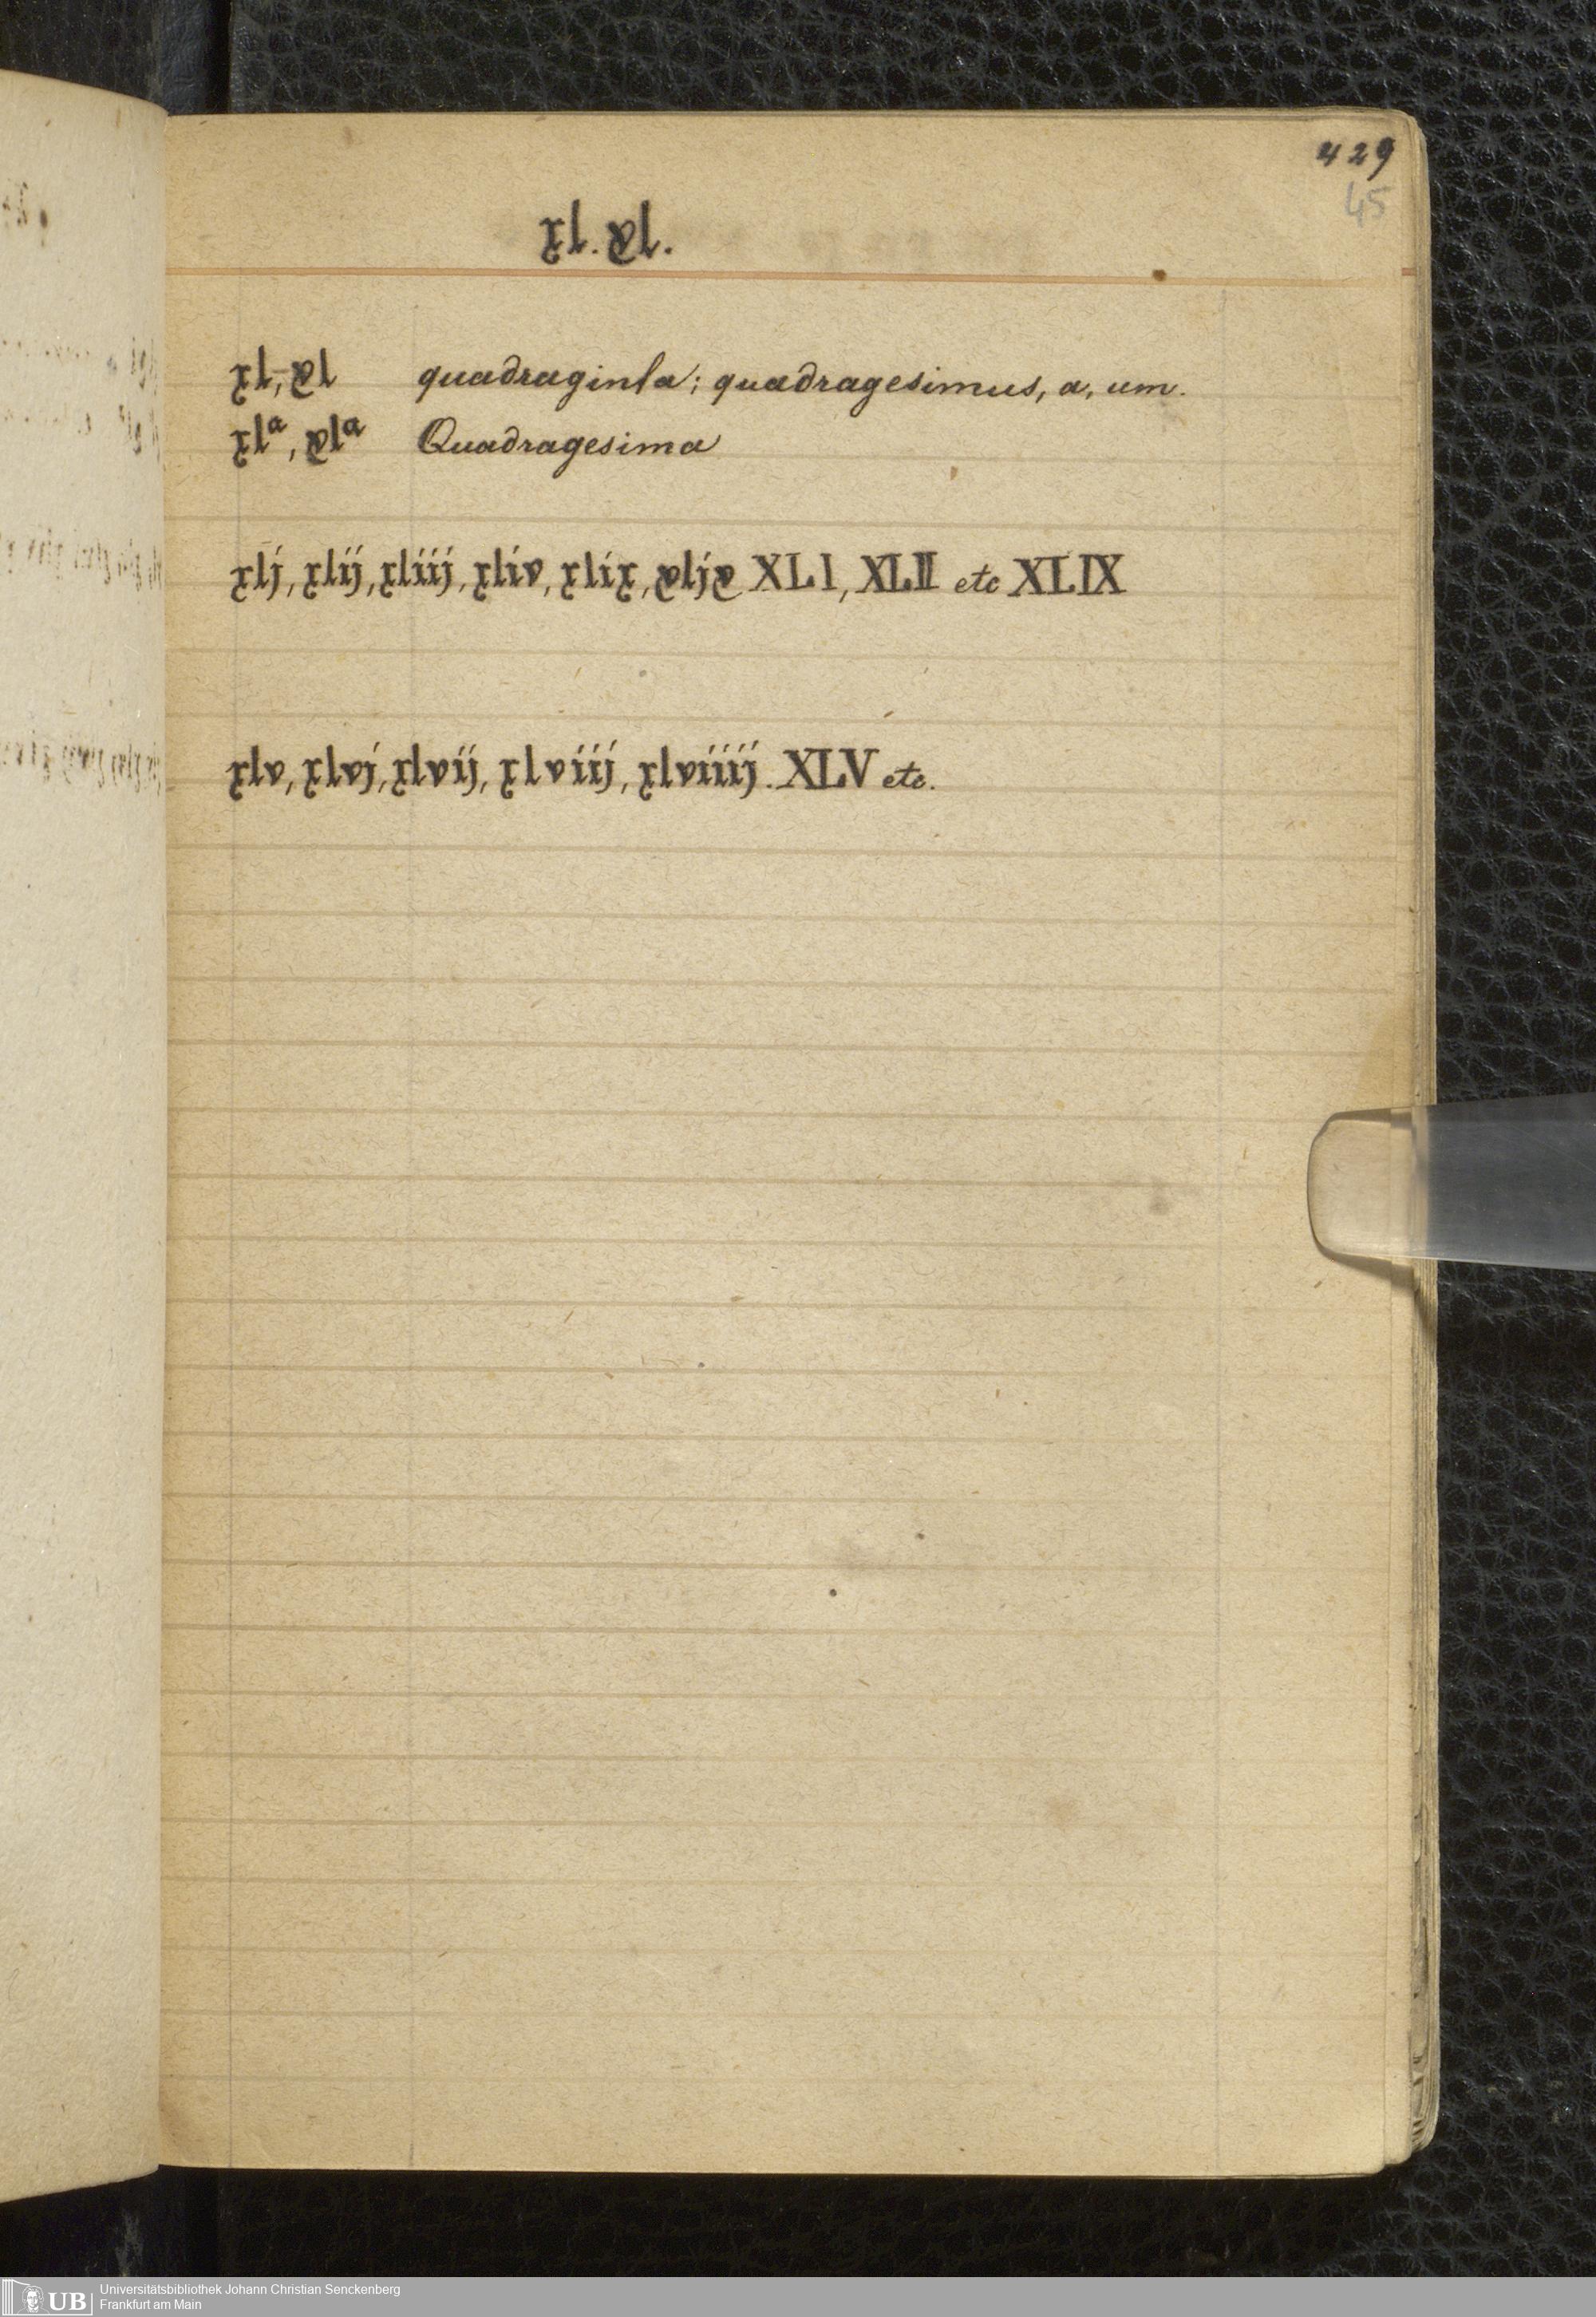 429
45
xl. xl.
xl, xl quadraginta; quadragesimus, a, um.
xlª, xlª Quadragesima
xlj, xlij, xliij, xliv, xlix, xljx XLI, XLII etc XLIX
xlv, xlvj, xlvij, xlviij, xlviiij. XLV etc.
UB Universitätsbibliothek Johann Christian Senckenberg
Frankfurt am Main